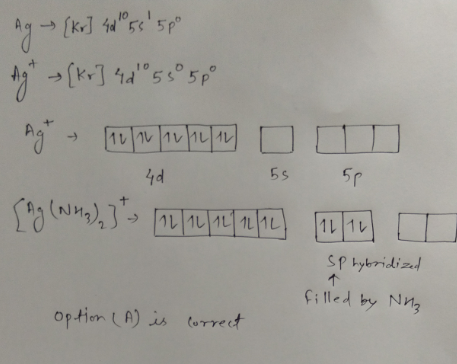 Ag → [Kr] 4d¹⁰ 5s¹ 5p⁰
Ag⁺ → [Kr] 4d¹⁰ 5s⁰ 5p⁰
Ag⁺ → 1L 1L 1L 1L 1L
4d 5s 5p
[Ag(NH₃)₂]⁺ → 1L 1L 1L 1L 1L 1L 1L
SP hybridized
↑
filled by NH₃
option (A) is correct